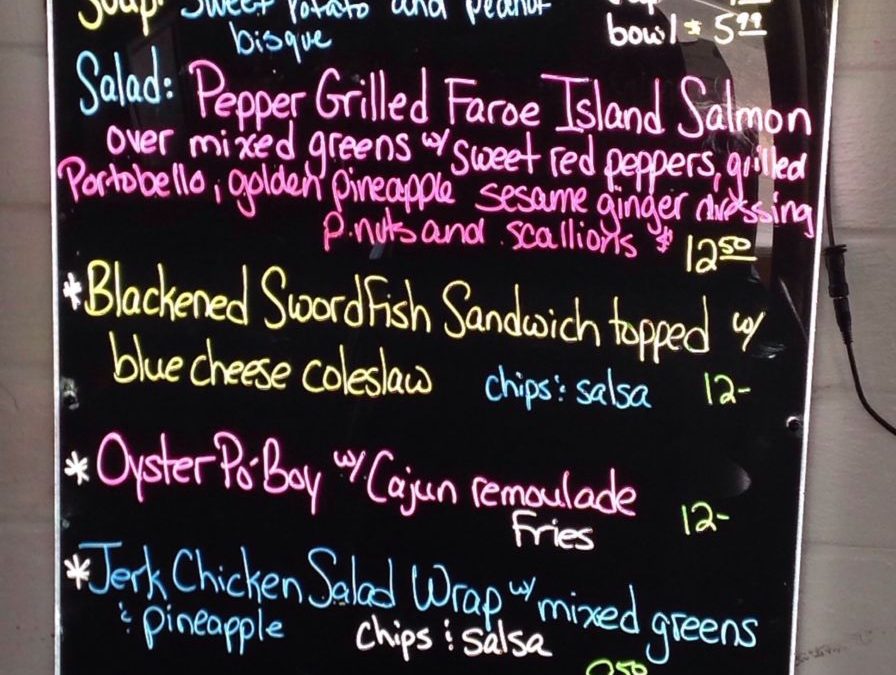 Soup: Sweet Potato and peanut
bisque
bowl $ 5.99
Salad: Pepper Grilled Faroe Island Salmon
over mixed greens w/ sweet red peppers, grilled
Portobello, golden pineapple sesame ginger dressing
P.nuts and scallions $ 12.50
*Blackened Swordfish Sandwich topped w/
blue cheese coleslaw chips & salsa 12-
*Oyster Po-Boy w/ Cajun remoulade
Fries 12-
*Jerk Chicken Salad Wrap w/ mixed greens
& pineapple chips & salsa